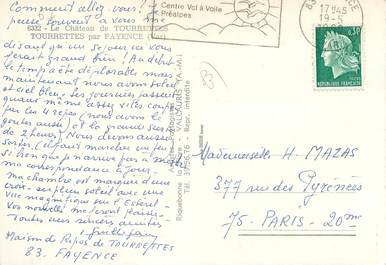 Comment allez vous ! Je
pense souvent à vous me
6332 - Le Château de TOURRETTES
TOURRETTES par FAYENCE (Var)
disant qu'un séjour ici vous
ferait grand bien ! Au début
le temps a été déplorable mais
maintenant nous avons soleil
et ciel bleu. Les journées passent
quand même assez vite
par les 4 repas (nous avons le
goûter aussi) et la grande sieste
de 2 heures. Nous devons aussi
sortir (il faut marcher un peu)
si bien que je n'arrive pas à mettre
ma correspondance à jour.
ma chambre est marquée d'une
croix - en plein soleil avec une
vue magnifique sur l'Esterel.
Vos nouvelles me feront plaisir.
Toutes mes sincères amitiés
Maison de Repos de TOURRETTES
83. FAYENCE
VALLAURIS (A.-M.)
Repr. interdite
Centre Vol à Voile
Préalpes
17H45
19-5
0,30
REPUBLIQUE FRANÇAISE
Mademoiselle H. MAZAS
377 rue des Pyrénées
75 - PARIS - 20me